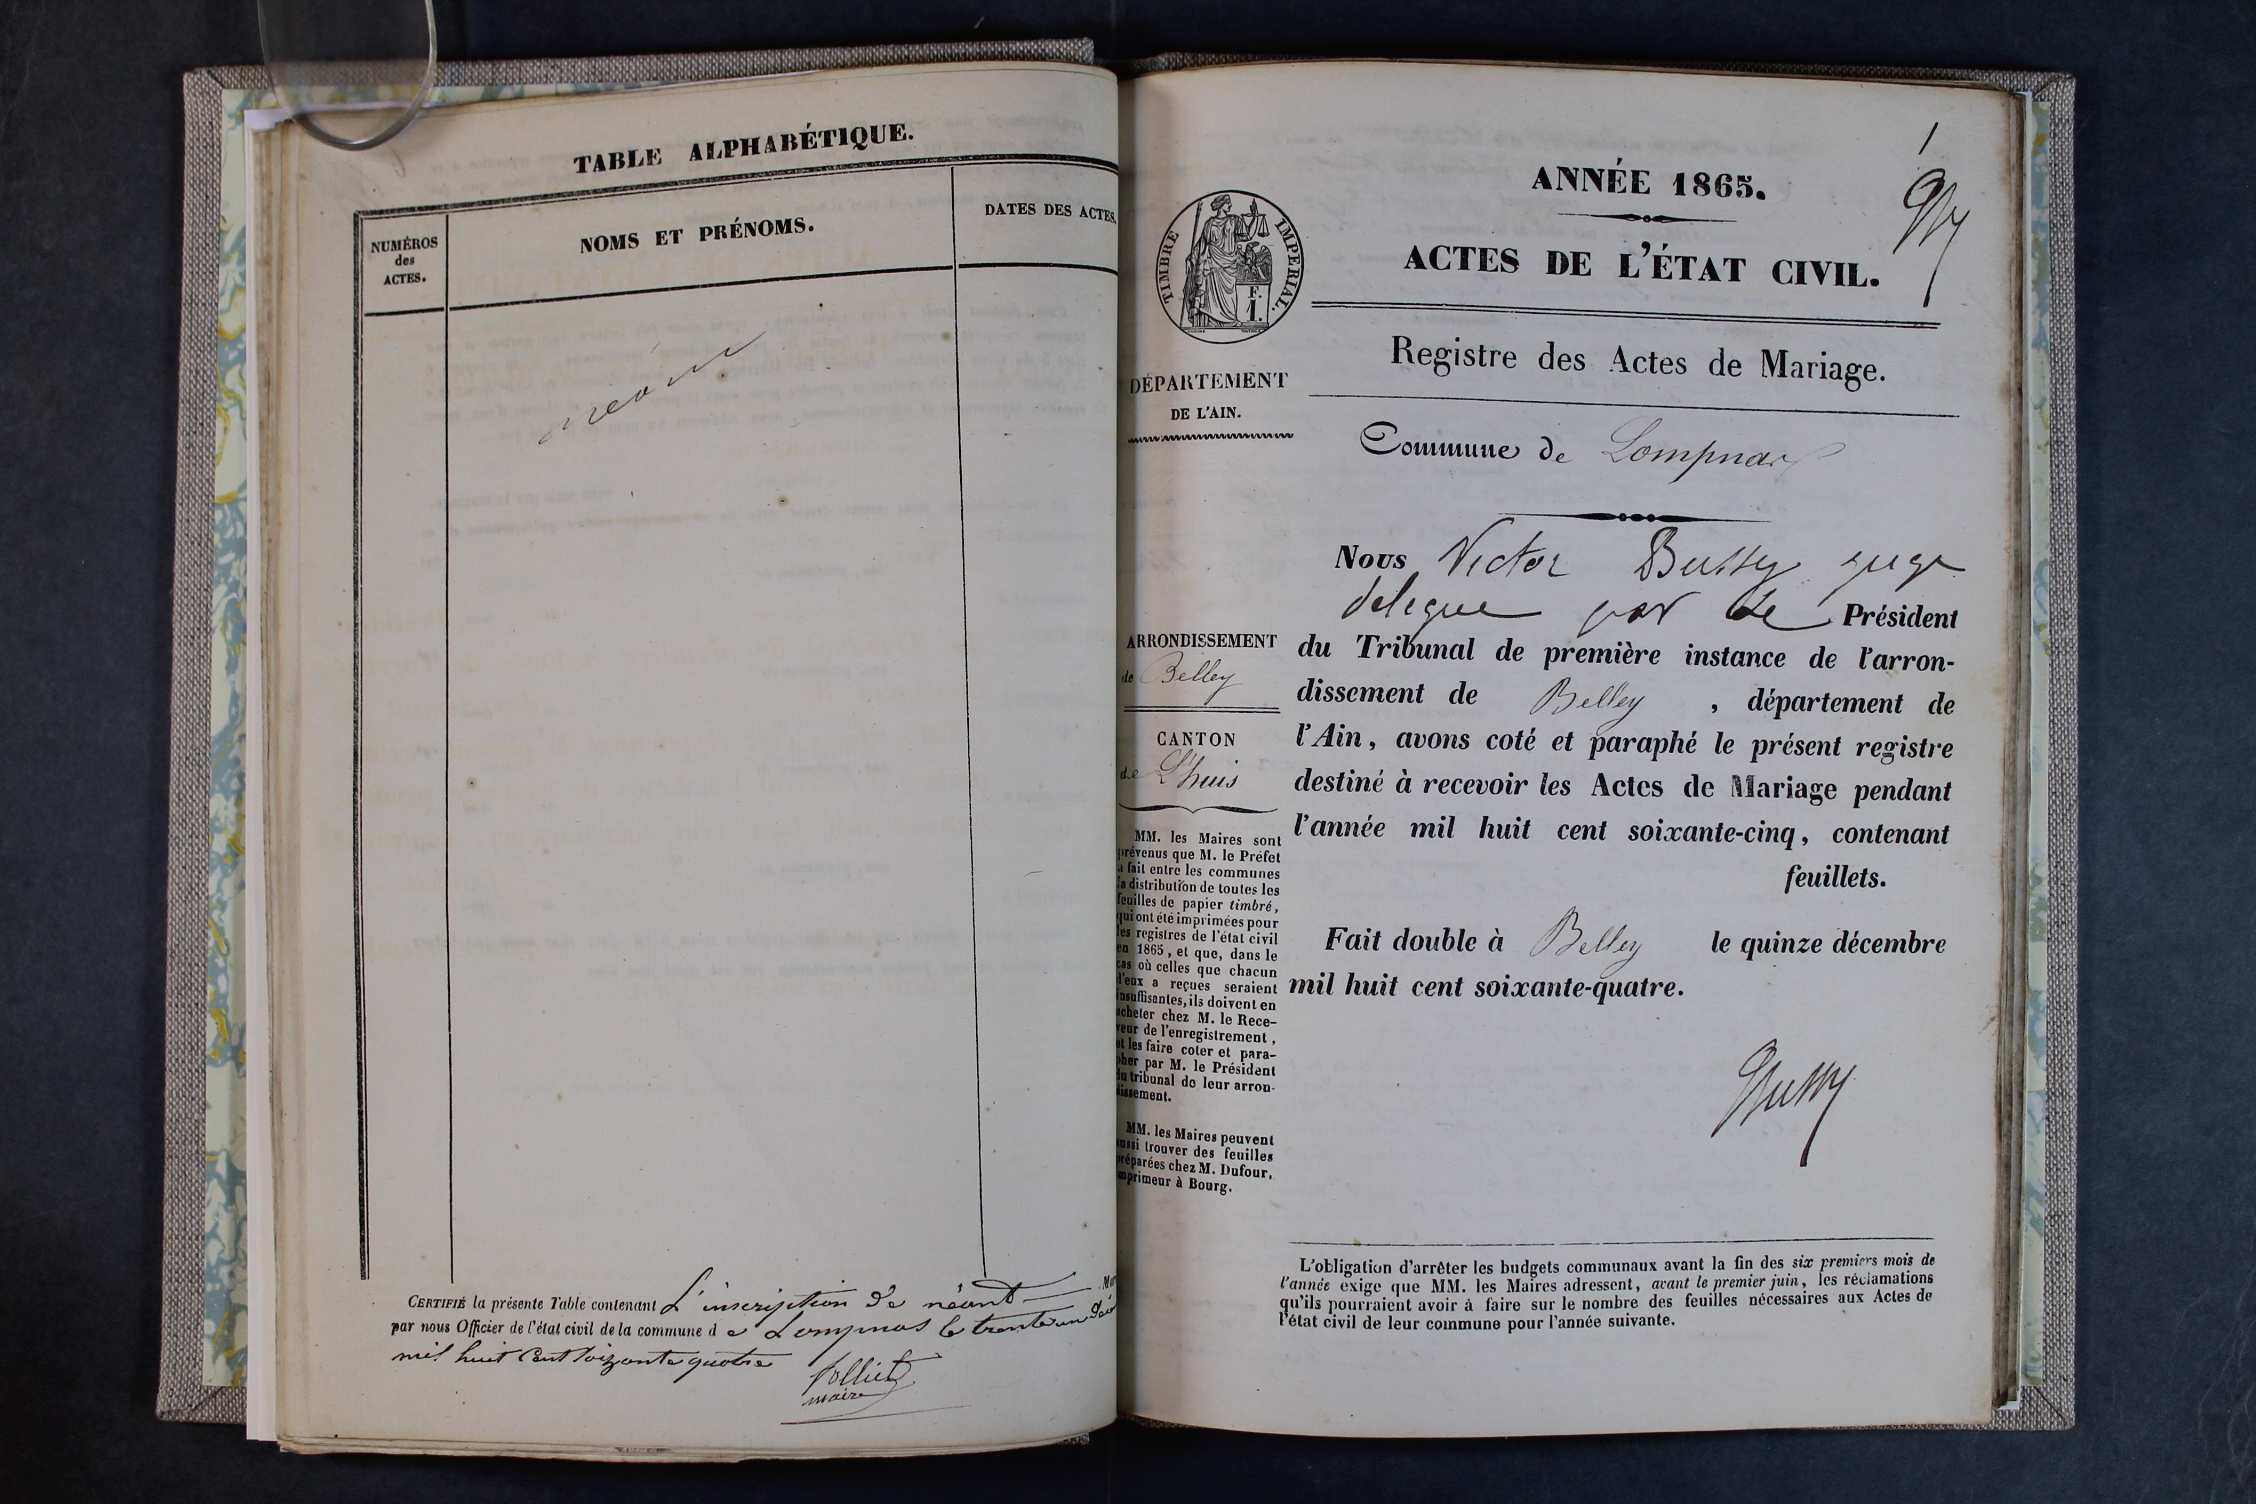 TABLE ALPHABÉTIQUE.
NUMÉROS
des
ACTES.
NOMS ET PRÉNOMS.
DATES DES ACTES.
néant
CERTIFIÉ la présente Table contenant L'inscription de néant
par nous Officier de l'état civil de la commune de Lompnas le trente un
mil huit cent soixante quatre
Folliet
maire
1
ANNÉE 1865.
ACTES DE L'ÉTAT CIVIL.
TIMBRE IMPERIAL.
F.
1.
Registre des Actes de Mariage.
DÉPARTEMENT
DE L'AIN.
Commune de Lompnas
ARRONDISSEMENT
de Belley
CANTON
de L'huis
MM. les Maires sont
prévenus que M. le Préfet
a fait entre les communes
la distribution de toutes les
feuilles de papier timbré,
qui ont été imprimées pour
les registres de l'état civil
en 1865, et que, dans le
cas où celles que chacun
d'eux a reçues seraient
insuffisantes, ils doivent en
acheter chez M. le Rece-
veur de l'enregistrement,
et les faire coter et para-
pher par M. le Président
du tribunal de leur arron-
dissement.
MM. les Maires peuvent
aussi trouver des feuilles
préparées chez M. Dufour,
imprimeur à Bourg.
Nous Victor Bussy juge
delegue par le Président
du Tribunal de première instance de l'arron-
dissement de Belley, département de
l'Ain, avons coté et paraphé le présent registre
destiné à recevoir les Actes de Mariage pendant
l'année mil huit cent soixante-cinq, contenant
feuillets.
Fait double à Belley le quinze décembre
mil huit cent soixante-quatre.
Bussy
L'obligation d'arrêter les budgets communaux avant la fin des six premiers mois de
l'année exige que MM. les Maires adressent, avant le premier juin, les réclamations
qu'ils pourraient avoir à faire sur le nombre des feuilles nécessaires aux Actes de
l'état civil de leur commune pour l'année suivante.